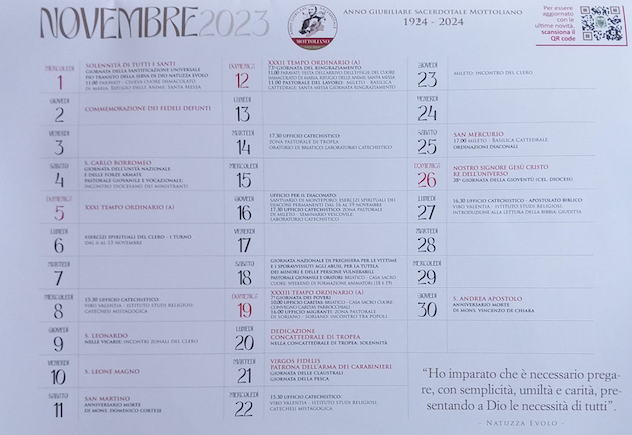 NOVEMBRE 2023
MOTTOLIANO
ANNO GIUBILIARE SACERDOTALE MOTTOLIANO
1924 - 2024
Per essere
aggiornato
con le
ultime novità,
scansiona il
QR code
MERCOLEDÌ
1
SOLENNITÀ DI TUTTI I SANTI
GIORNATA DELLA SANTIFICAZIONE UNIVERSALE
NEL TRANSITO DELLA SERVA DI DIO NATUZZA EVOLO
11.00 PARAVATI - CHIESA CUORE IMMACOLATO
DI MARIA, RIFUGIO DELLE ANIME: SANTA MESSA
GIOVEDÌ
2
COMMEMORAZIONE DEI FEDELI DEFUNTI
VENERDÌ
3
SABATO
4
S. CARLO BORROMEO
GIORNATA DELL'UNITÀ NAZIONALE
E DELLE FORZE ARMATE
PASTORALE GIOVANILE E VOCAZIONALE:
INCONTRO DIOCESANO DEI MINISTRANTI
DOMENICA
5
XXXI TEMPO ORDINARIO (A)
LUNEDÌ
6
ESERCIZI SPIRITUALI DEL CLERO - I TURNO
DAL 6 AL 13 NOVEMBRE
MARTEDÌ
7
MERCOLEDÌ
8
15.30 UFFICIO CATECHISTICO:
VIBO VALENTIA - ISTITUTO STUDI RELIGIOSI:
CATECHESI MISTAGOGICA
GIOVEDÌ
9
S. LEONARDO
NELLE VICARIE: INCONTRI ZONALI DEL CLERO
VENERDÌ
10
S. LEONE MAGNO
SABATO
11
SAN MARTINO
ANNIVERSARIO MORTE
DI MONS. DOMENICO CORTESE
DOMENICA
12
XXXII TEMPO ORDINARIO (A)
73ª GIORNATA DEL RINGRAZIAMENTO
11.00 PARAVATI: FESTA DELL'ARRIVO DELL'EFFIGE DEL CUORE
IMMACOLATO DI MARIA, RIFUGIO DELLE ANIME. SANTA MESSA
11.00 PASTORALE DEL LAVORO: MILETO - BASILICA
CATTEDRALE: SANTA MESSA GIORNATA RINGRAZIAMENTO
LUNEDÌ
13
MARTEDÌ
14
17.30 UFFICIO CATECHISTICO:
ZONA PASTORALE DI TROPEA
ORATORIO DI BRIATICO: LABORATORIO CATECHISTICO
MERCOLEDÌ
15
GIOVEDÌ
16
UFFICIO PER IL DIACONATO:
SANTUARIO DI MONTEPORO: ESERCIZI SPIRITUALI DEI
DIACONI PERMANENTI DAL 16 AL 19 NOVEMBRE
17.30 UFFICIO CATECHISTICO: ZONA PASTORALE
DI MILETO - SEMINARIO VESCOVILE
LABORATORIO CATECHISTICO
VENERDÌ
17
SABATO
18
GIORNATA NAZIONALE DI PREGHIERA PER LE VITTIME
E I SOPRAVVISSUTI AGLI ABUSI, PER LA TUTELA
DEI MINORI E DELLE PERSONE VULNERABILI
PASTORALE GIOVANILE E ORATORI: BRIATICO - CASA SACRO
CUORE: WEEKEND DI FORMAZIONE ANIMATORI (18 E 19)
DOMENICA
19
XXXIII TEMPO ORDINARIO (A)
7ª GIORNATA DEI POVERI
10.00 UFFICIO CARITAS: BRIATICO - CASA SACRO CUORE:
CONVEGNO CARITAS PARROCCHIALI
16.00 UFFICIO MIGRANTI: ZONA PASTORALE
DI SORIANO - SORIANO: INCONTRO TRA POPOLI
LUNEDÌ
20
DEDICAZIONE
CONCATTEDRALE DI TROPEA
NELLA CONCATTEDRALE DI TROPEA: SOLENNITÀ
MARTEDÌ
21
VIRGOS FIDELIS
PATRONA DELL'ARMA DEI CARABINIERI
GIORNATA DELLE CLAUSTRALI
GIORNATA DELLA PESCA
MERCOLEDÌ
22
15.30 UFFICIO CATECHISTICO:
VIBO VALENTIA - ISTITUTO STUDI RELIGIOSI:
CATECHESI MISTAGOGICA
GIOVEDÌ
23
MILETO: INCONTRO DEL CLERO
VENERDÌ
24
SABATO
25
SAN MERCURIO
17.00 MILETO - BASILICA CATTEDRALE
ORDINAZIONI DIACONALI
DOMENICA
26
NOSTRO SIGNORE GESÙ CRISTO
RE DELL'UNIVERSO
38ª GIORNATA DELLA GIOVENTÙ (CEL. DIOCESI)
LUNEDÌ
27
16.30 UFFICIO CATECHISTICO - APOSTOLATO BIBLICO
VIBO VALENTIA - ISTITUTO STUDI RELIGIOSI:
INTRODUZIONE ALLA LETTURA DELLA BIBBIA: GIUDITTA
MARTEDÌ
28
MERCOLEDÌ
29
GIOVEDÌ
30
S. ANDREA APOSTOLO
ANNIVERSARIO MORTE
DI MONS. VINCENZO DE CHIARA
“Ho imparato che è necessario prega-
re, con semplicità, umiltà e carità, pre-
sentando a Dio le necessità di tutti”.
- NATUZZA EVOLO -